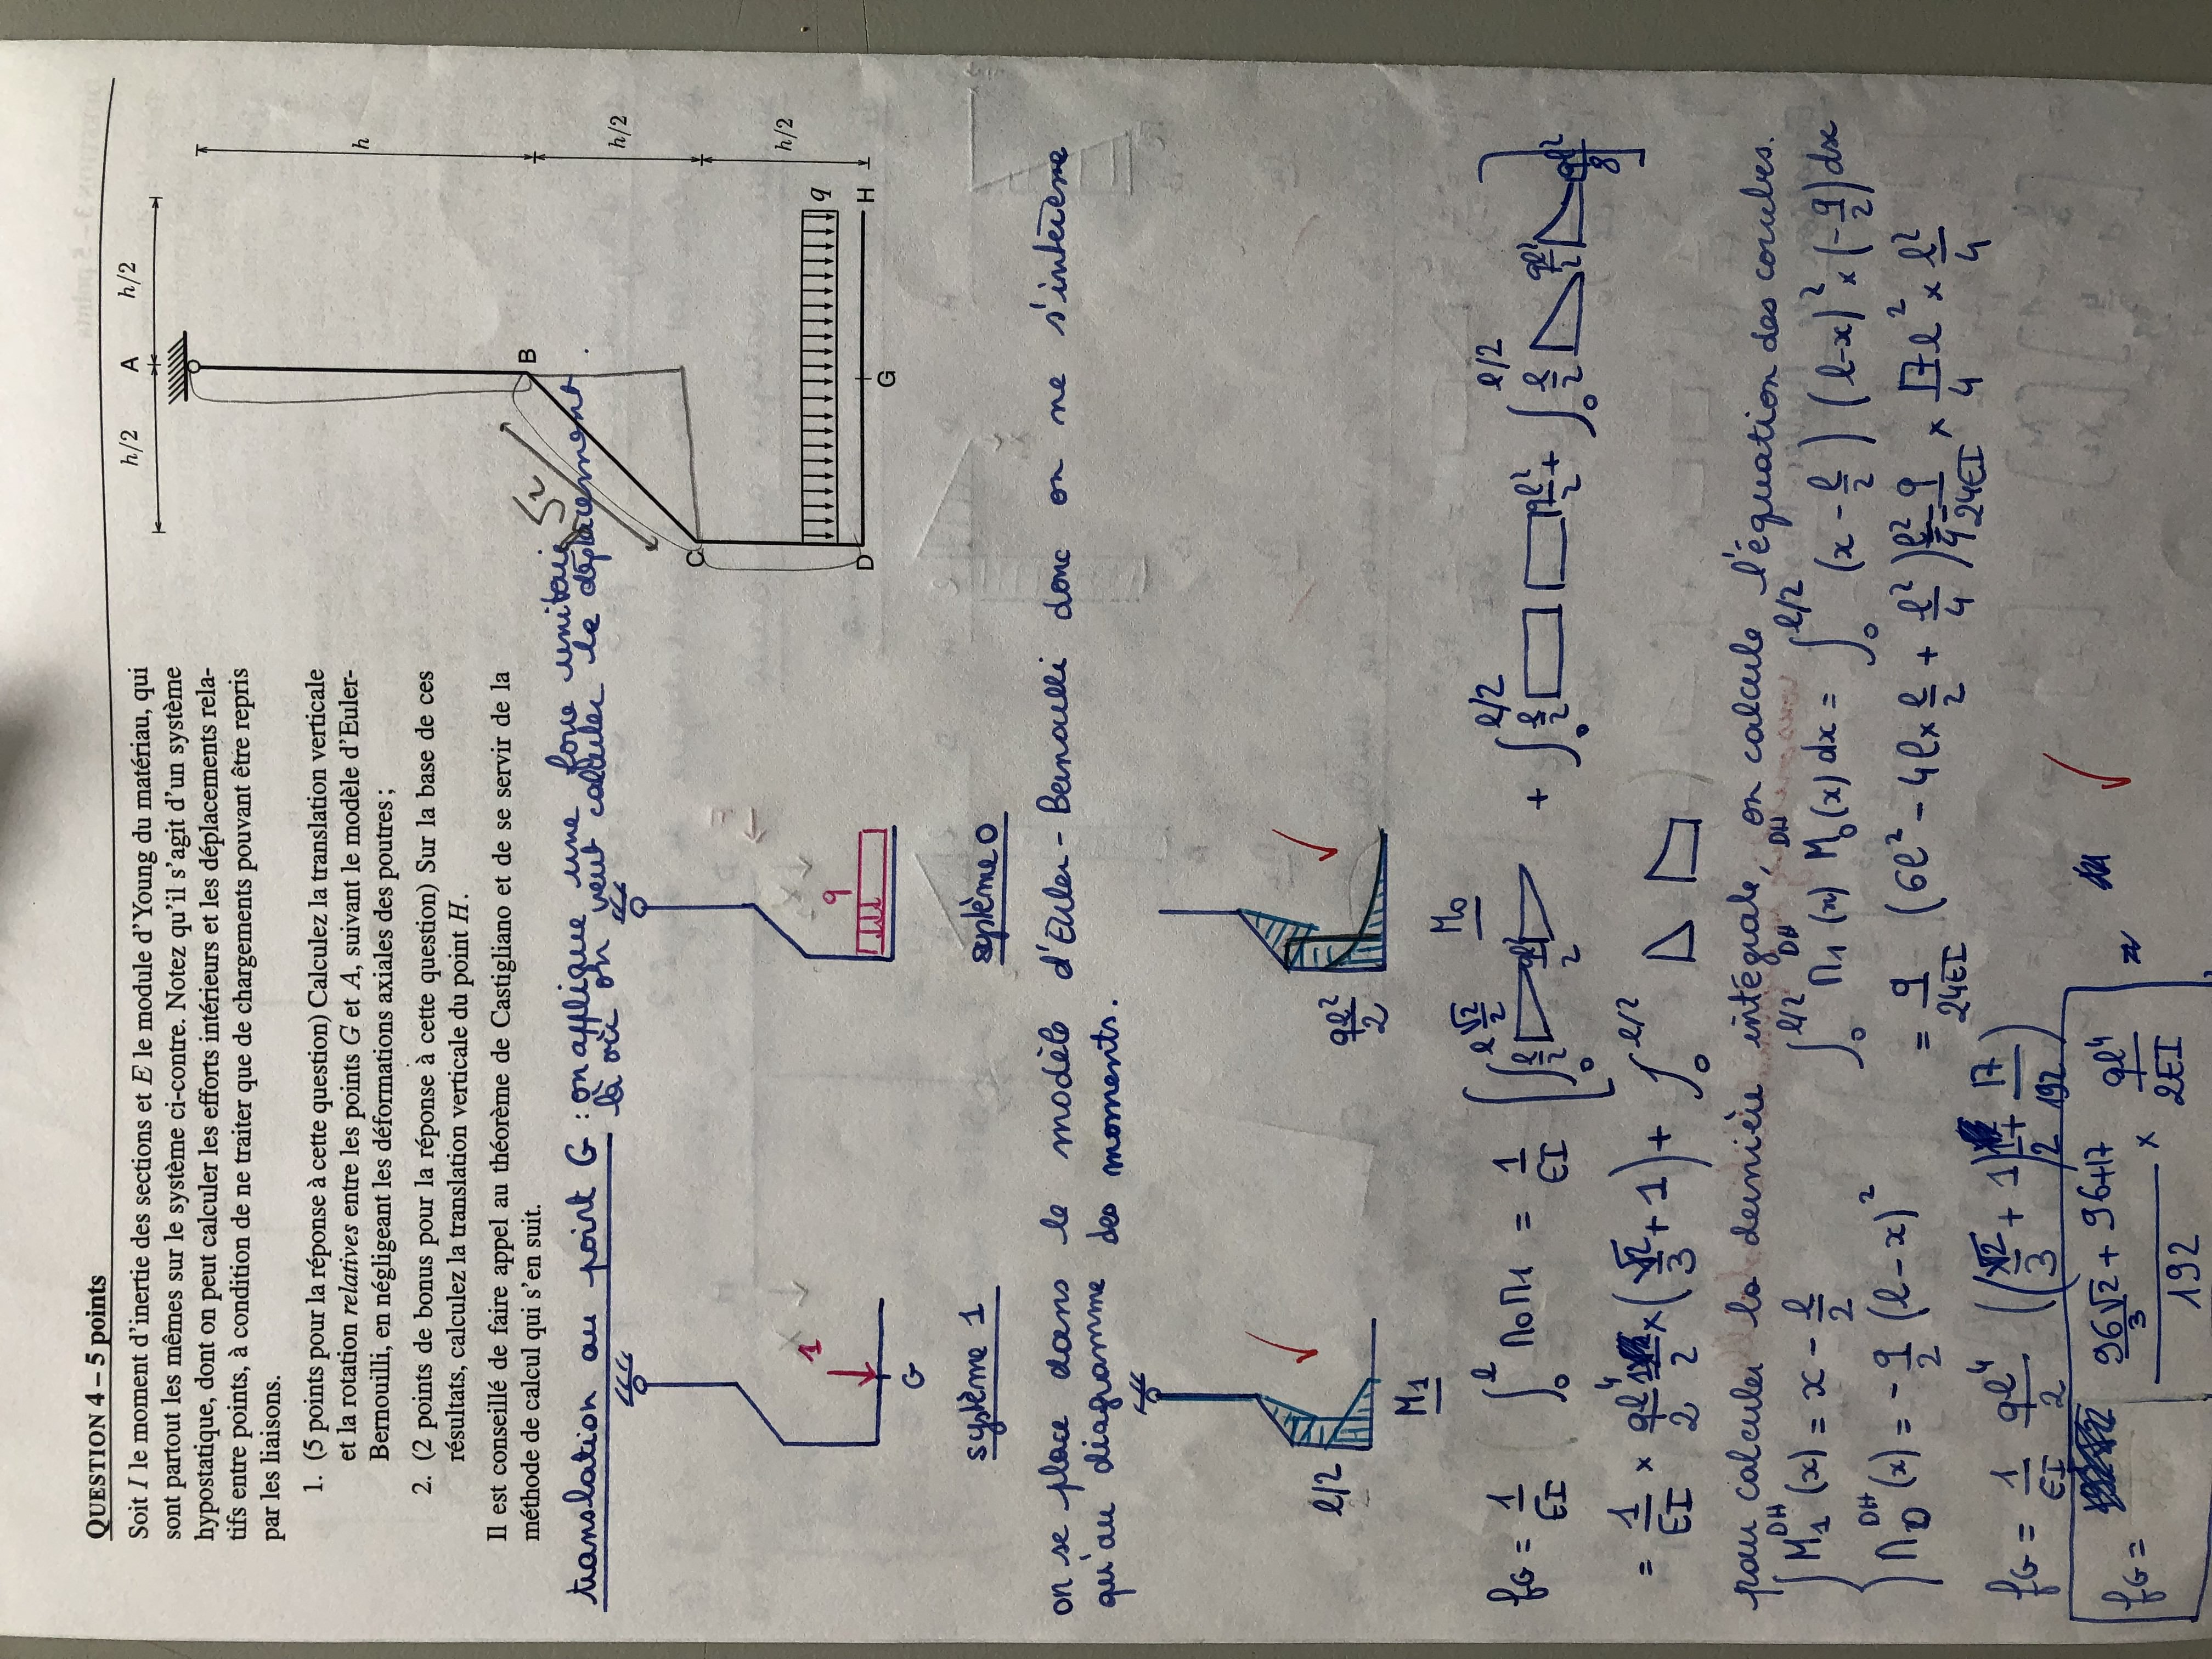 QUESTION 4 – 5 points
Soit I le moment d'inertie des sections et E le module d'Young du matériau, qui
sont partout les mêmes sur le système ci-contre. Notez qu'il s'agit d'un système
hypostatique, dont on peut calculer les efforts intérieurs et les déplacements rela-
tifs entre points, à condition de ne traiter que de chargements pouvant être repris
par les liaisons.
1. (5 points pour la réponse à cette question) Calculez la translation verticale
et la rotation relatives entre les points G et A, suivant le modèle d'Euler-
Bernouilli, en négligeant les déformations axiales des poutres ;
2. (2 points de bonus pour la réponse à cette question) Sur la base de ces
résultats, calculez la translation verticale du point H.
Il est conseillé de faire appel au théorème de Castigliano et de se servir de la
méthode de calcul qui s'en suit.
h/2 A h/2
h
B
h/2
C
h/2
q
D G H
translation au point G : on applique une force unitaire
là où on veut calculer le déplacement
1
G
q
système 1
système 0
on se place dans le modèle d'Euler-Bernoulli donc on ne s'intéresse
qu'au diagramme des moments.
l/2
ql²/2
M1
M0
fG = 1/EI ∫₀^l M0M1 = 1/EI [∫₀^(l√2/2) l/2 ql²/2 + ∫₀^(l/2) l/2 ql²/2 + ∫₀^(l/2) l/2 ql²/2 ql²/8]
= 1/EI × ql⁴/2 × (√2/3 + 1) + ∫₀^(l/2)
pour calculer la dernière intégrale, on calcule l'équation des courbes.
M1^DH (x) = x - l/2
M0^DH (x) = - q/2 (l-x)²
∫₀^(l/2) M1^DH (x) M0^DH (x) dx = ∫₀^(l/2) (x - l/2) (l-x)² × (-q/2) dx
= q/24EI (6l² - 4l × l/2 + l²/4) l²/4 = q/24EI × 17l²/4 × l²/4
fG = 1/EI ql⁴/2 ((√2/3 + 1) 1/2 + 17/192)
fG = 96√2/3 + 96+17 / 192 × ql⁴/2EI